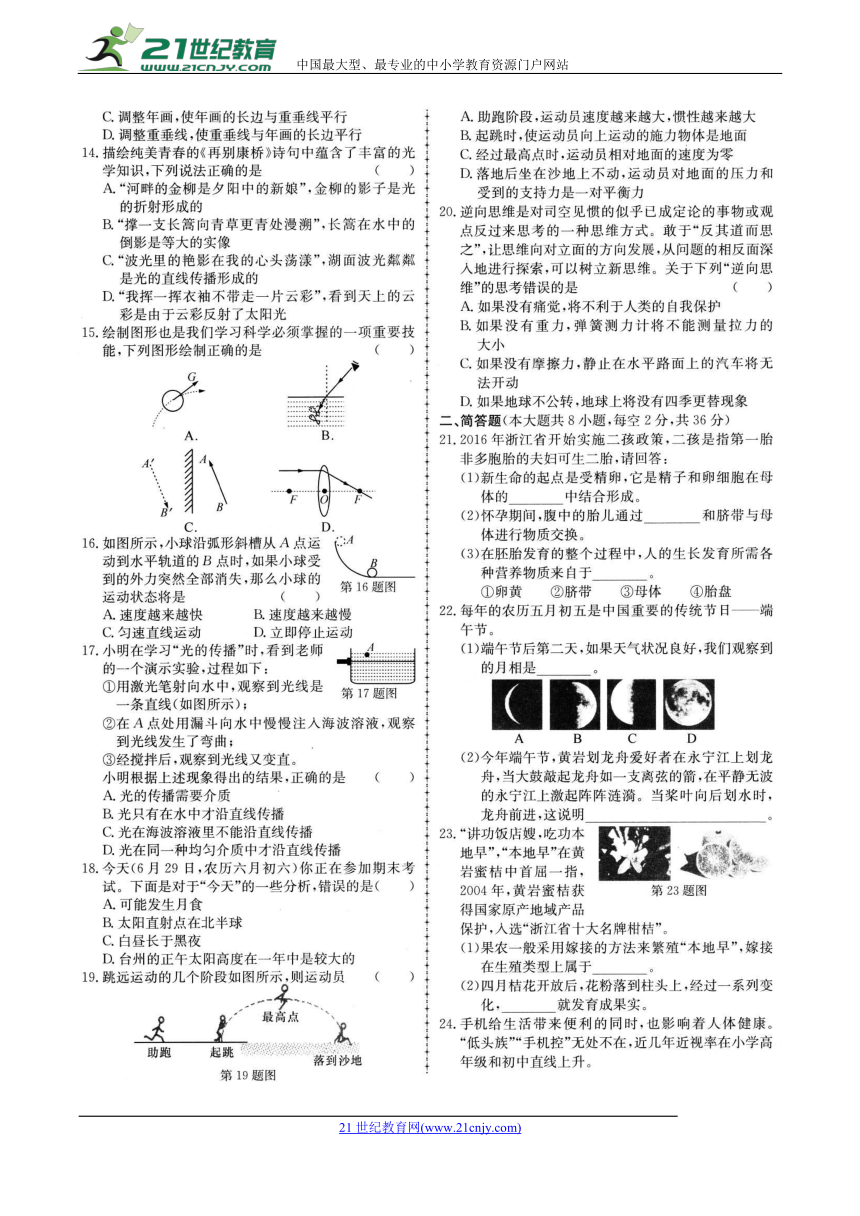 21世纪教育
WWW.21CNJY.COM
中国最大型、最专业的中小学教育资源门户网站
C. 调整年画,使年画的长边与重垂线平行
D. 调整重垂线,使重垂线与年画的长边平行
14. 描绘纯美青春的《再别康桥》诗句中蕴含了丰富的光
学知识,下列说法正确的是 ( )
A. “河畔的金柳是夕阳中的新娘”,金柳的影子是光
的折射形成的
B. “撑一支长篙向青草更青处漫溯”,长篙在水中的
倒影是等大的实像
C. “波光里的艳影在我的心头荡漾”,湖面波光粼粼
是光的直线传播形成的
D. “我挥一挥衣袖不带走一片云彩”,看到天上的云
彩是由于云彩反射了太阳光
15. 绘制图形也是我们学习科学必须掌握的一项重要技
能,下列图形绘制正确的是 ( )
G
A.
B.
A′
A
B′
B
C.
F
O
F
D.
16. 如图所示,小球沿弧形斜槽从 A 点运
动到水平轨道的 B 点时,如果小球受
到的外力突然全部消失,那么小球的
运动状态将是 ( )
A
B
第 16 题图
A. 速度越来越快 B. 速度越来越慢
C. 匀速直线运动 D. 立即停止运动
17. 小明在学习“光的传播”时,看到老师
的一个演示实验,过程如下:
①用激光笔射向水中,观察到光线是
一条直线(如图所示);
A
第 17 题图
②在 A 点处用漏斗向水中慢慢注入海波溶液,观察
到光线发生了弯曲;
③经搅拌后,观察到光线又变直。
小明根据上述现象得出的结果,正确的是 ( )
A. 光的传播需要介质
B. 光只有在水中才沿直线传播
C. 光在海波溶液里不能沿直线传播
D. 光在同一种均匀介质中才沿直线传播
18. 今天(6 月 29 日,农历六月初六)你正在参加期末考
试。下面是对于“今天”的一些分析,错误的是( )
A. 可能发生月食
B. 太阳直射点在北半球
C. 白昼长于黑夜
D. 台州的正午太阳高度在一年中是较大的
19. 跳远运动的几个阶段如图所示,则运动员 ( )
最高点
助跑
起跳
落到沙地
第 19 题图
A. 助跑阶段,运动员速度越来越大,惯性越来越大
B. 起跳时,使运动员向上运动的施力物体是地面
C. 经过最高点时,运动员相对地面的速度为零
D. 落地后坐在沙地上不动,运动员对地面的压力和
受到的支持力是一对平衡力
20. 逆向思维是对司空见惯的似乎已成定论的事物或观
点反过来思考的一种思维方式。敢于“反其道而思
之”,让思维向对立面的方向发展,从问题的相反面深
入地进行探索,可以树立新思维。关于下列“逆向思
维”的思考错误的是 ( )
A. 如果没有痛觉,将不利于人类的自我保护
B. 如果没有重力,弹簧测力计将不能测量拉力的
大小
C. 如果没有摩擦力,静止在水平路面上的汽车将无
法开动
D. 如果地球不公转,地球上将没有四季更替现象
二、简答题(本大题共 8 小题,每空 2 分,共 36 分)
21. 2016 年浙江省开始实施二孩政策,二孩是指第一胎
非多胞胎的夫妇可生二胎,请回答:
(1)新生命的起点是受精卵,它是精子和卵细胞在母
体的________中结合形成。
(2)怀孕期间,腹中的胎儿通过________和脐带与母
体进行物质交换。
(3)在胚胎发育的整个过程中,人的生长发育所需各
种营养物质来自于________。
①卵黄 ②脐带 ③母体 ④胎盘
22. 每年的农历五月初五是中国重要的传统节日——端
午节。
(1)端午节后第二天,如果天气状况良好,我们观察到
的月相是________。
A B C D
(2)今年端午节,黄岩划龙舟爱好者在永宁江上划龙
舟,当大鼓敲起龙舟如一支离弦的箭,在平静无波
的永宁江上激起阵阵涟漪。当桨叶向后划水时,
龙舟前进,这说明________________________。
23. “讲功饭店嫂,吃功本
地早”,“本地早”在黄
岩蜜桔中首屈一指,
2004 年,黄岩蜜桔获
得国家原产地域产品
第 23 题图
保护,入选“浙江省十大名牌柑桔”。
(1)果农一般采用嫁接的方法来繁殖“本地早”,嫁接
在生殖类型上属于________。
(2)四月桔花开放后,花粉落到柱头上,经过一系列变
化,________就发育成果实。
24. 手机给生活带来便利的同时,也影响着人体健康。
“低头族”“手机控”无处不在,近几年近视率在小学高
年级和初中直线上升。
21 世纪教育网(www.21cnjy.com)